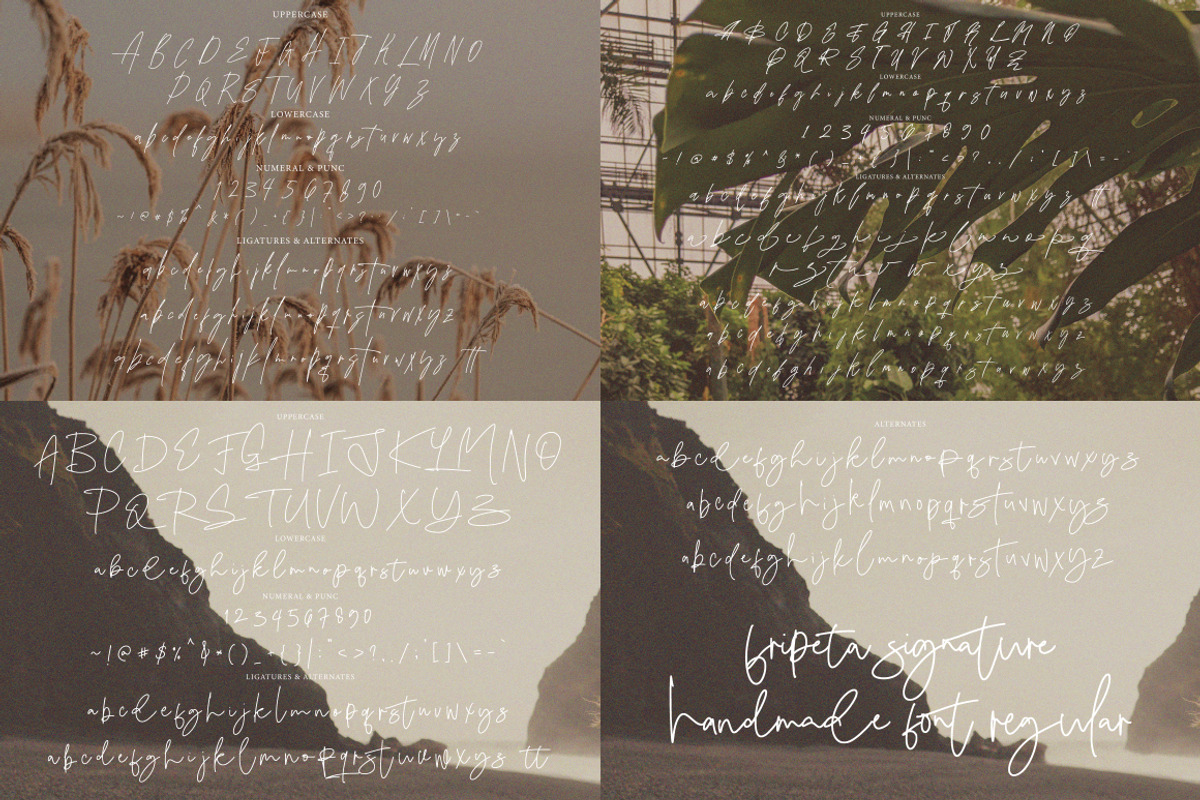 UPPERCASE
A B C D E F G H I J K L M N O
P Q R S T U V W X Y Z
LOWERCASE
a b c d e f g h i j k l m n o p q r s t u v w x y z
NUMERAL & PUNC
1 2 3 4 5 6 7 8 9 0
~ ! @ # $ % ^ & * ( ) _ + { } | : " < > ? . , / ; ' [ ] \ = - `
LIGATURES & ALTERNATES
a b c d e f g h i j k l m n o p q r s t u v w x y z
a b c d e f g h i j k l m n o p q r s t u v w x y z
a b c d e f g h i j k l m n o p q r s t u v w x y z tt
UPPERCASE
A B C D E F G H I J K L M N O
P Q R S T U V W X Y Z
LOWERCASE
a b c d e f g h i j k l m n o p q r s t u v w x y z
NUMERAL & PUNC
1 2 3 4 5 6 7 8 9 0
~ ! @ # $ % ^ & * ( ) _ + { } | : " < > ? . , / ; ' [ ] \ = - `
LIGATURES & ALTERNATES
a b c d e f g h i j k l m n o p q r s t u v w x y z tt
a b c d e f g h i j k l m n o p q
r s t u v w x y z
a b c d e f g h i j k l m n o p q r s t u v w x y z
a b c d e f g h i j k l m n o p q r s t u v w x y z
a b c d e f g h i j k l m n o p q r s t u v w x y z
UPPERCASE
A B C D E F G H I J K L M N O
P Q R S T U V W X Y Z
LOWERCASE
a b c d e f g h i j k l m n o p q r s t u v w x y z
NUMERAL & PUNC
1 2 3 4 5 6 7 8 9 0
~ ! @ # $ % ^ & * ( ) _ + { } | : " < > ? . , / ; ' [ ] \ = - `
LIGATURES & ALTERNATES
a b c d e f g h i j k l m n o p q r s t u v w x y z
a b c d e f g h i j k l m n o p q r s t u v w x y z tt
ALTERNATES
a b c d e f g h i j k l m n o p q r s t u v w x y z
a b c d e f g h i j k l m n o p q r s t u v w x y z
a b c d e f g h i j k l m n o p q r s t u v w x y z
fripeta signature
handmade font regular